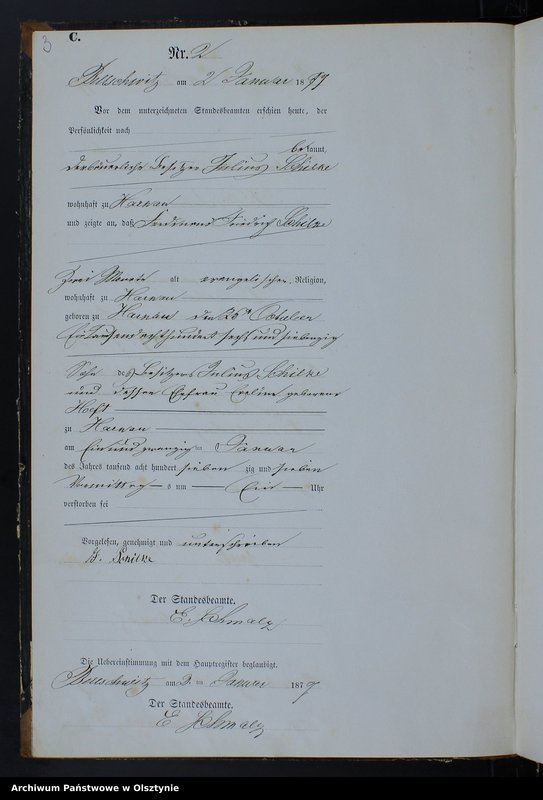 3
C.
Nr. 2
Bellschwitz am 2 Januar 1877
Vor dem unterzeichneten Standesbeamten erschien heute, der
Persönlichkeit nach
bekannt,
Besitzer Julius Schilke
wohnhaft zu
und zeigte an, daß Ferdinand Friedrich Schilke
Zwei Monate alt evangelischer Religion,
wohnhaft zu
geboren zu den October
Eintausendachthundert sechs und siebenzig
Sohn des Besitzers Julius Schilke
und dessen Ehefrau geborene
zu
am ten Januar
des Jahres tausend acht hundert sieben zig und sieben
Vormittags um Uhr
verstorben sei
Vorgelesen, genehmigt und unterschrieben
J. Schilke
Der Standesbeamte.
E. Schmalz
Die Uebereinstimmung mit dem Hauptregister beglaubigt.
Bellschwitz am 2. ten Januar 1877
Der Standesbeamte.
E Schmalz
Archiwum Państwowe w Olsztynie